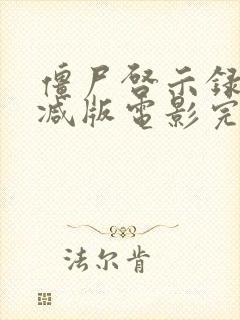 僵尸启示录
减版电影完
法尔肯